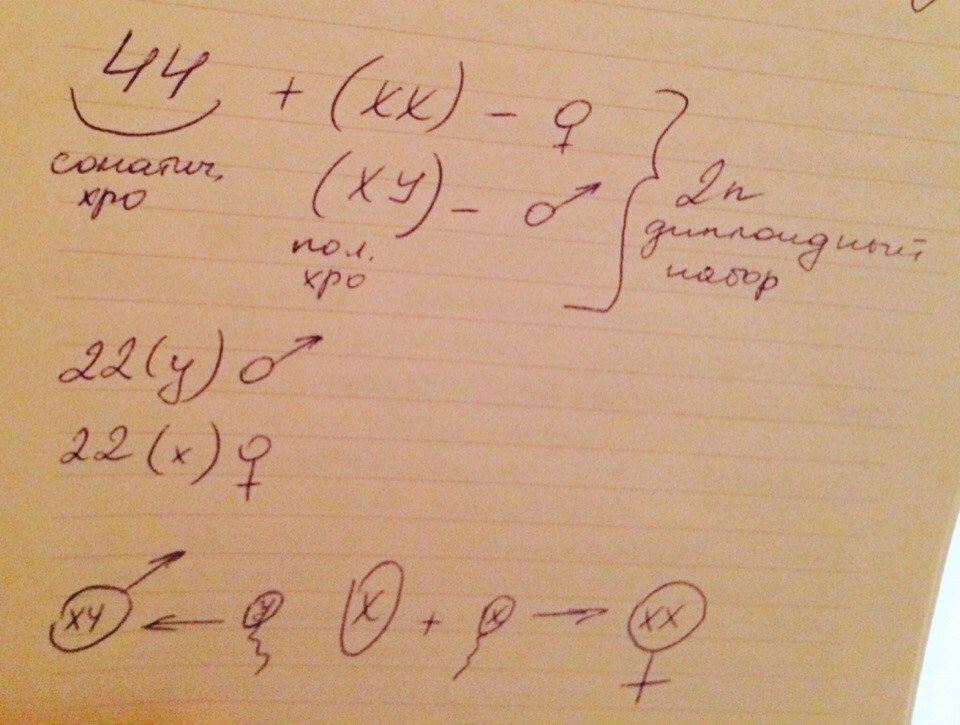 44 + (XX) - ♀
соматич.
хро
(XY) - ♂
пол.
хро
2n
диплоидный
набор
22(y) ♂
22(x) ♀
XY ← y X + x → XX